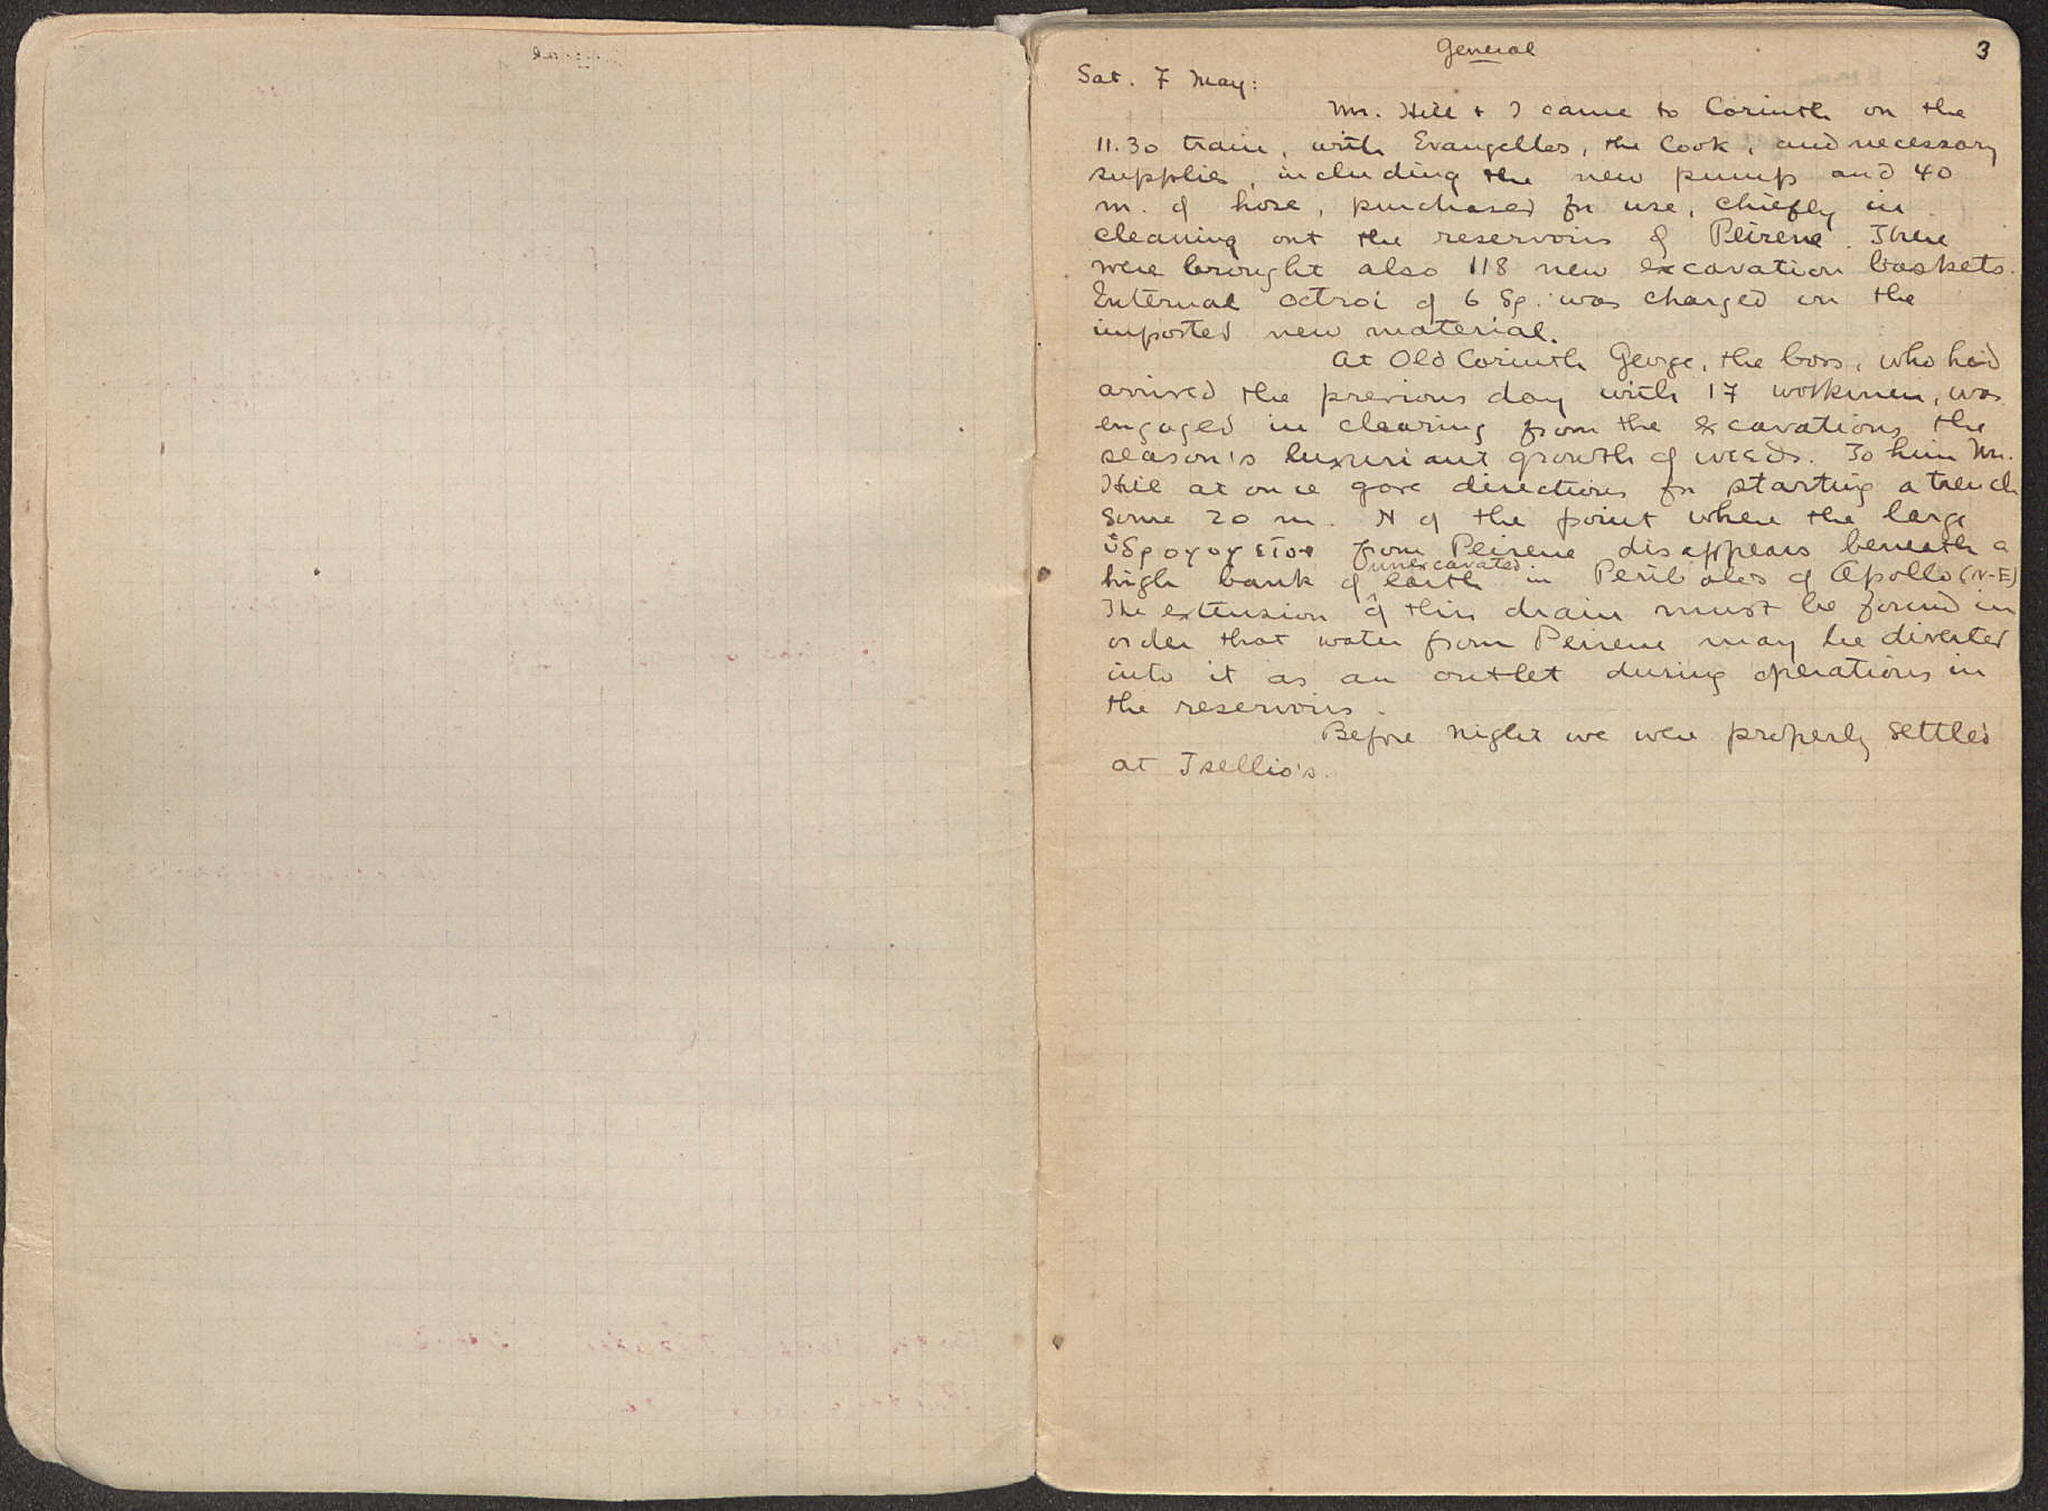 General
3
Sat. 7 May:
Mr. Hill + I came to Corinth on the
11.30 train, with Evangellos, the Cook, and necessary
supplies, including the new pump and 40
m. of hose, purchased for use, chiefly in
cleaning out the reservoirs of Peirene. There
were brought also 118 new excavation baskets.
External octroi of 6 δρ. was charged on the
imported new material.
At Old Corinth George, the boss, who had
arrived the previous day with 17 workmen, was
engaged in clearing from the excavations the
season's luxuriant growth of weeds. To him Mr.
Hill at once gave directions for starting a trench
some 20 m. N of the point where the large
from Peirene disappears beneath a
high bank of unexcavated earth in Peribolos of Apollo (N-E)
The extension of this drain must be found in
order that water from Peirene may be diverted
into it as an outlet during operations in
the reservoirs.
Before night we were properly settled
at Tsellio's.